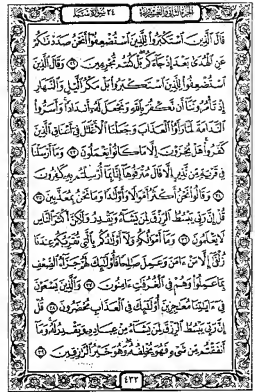 الجزء الثاني والعشرون ٣٤ سورة سبأ
قَالَ ٱلَّذِينَ ٱسْتَكْبَرُوا۟ لِلَّذِينَ ٱسْتُضْعِفُوٓا۟ أَنَحْنُ صَدَدْنَٰكُمْ
عَنِ ٱلْهُدَىٰ بَعْدَ إِذْ جَآءَكُم بَلْ كُنتُم مُّجْرِمِينَ ٣٢ وَقَالَ ٱلَّذِينَ
ٱسْتُضْعِفُوا۟ لِلَّذِينَ ٱسْتَكْبَرُوا۟ بَلْ مَكْرُ ٱلَّيْلِ وَٱلنَّهَارِ
إِذْ تَأْمُرُونَنَآ أَن نَّكْفُرَ بِٱللَّهِ وَنَجْعَلَ لَهُۥٓ أَندَادًا وَأَسَرُّوا۟
ٱلنَّدَامَةَ لَمَّا رَأَوُا۟ ٱلْعَذَابَ وَجَعَلْنَا ٱلْأَغْلَٰلَ فِىٓ أَعْنَاقِ ٱلَّذِينَ
كَفَرُوا۟ هَلْ يُجْزَوْنَ إِلَّا مَا كَانُوا۟ يَعْمَلُونَ ٣٣ وَمَآ أَرْسَلْنَا
فِى قَرْيَةٍ مِّن نَّذِيرٍ إِلَّا قَالَ مُتْرَفُوهَآ إِنَّا بِمَآ أُرْسِلْتُم بِهِۦ كَٰفِرُونَ
٣٤ وَقَالُوا۟ نَحْنُ أَكْثَرُ أَمْوَٰلًا وَأَوْلَٰدًا وَمَا نَحْنُ بِمُعَذَّبِينَ ٣٥
قُلْ إِنَّ رَبِّى يَبْسُطُ ٱلرِّزْقَ لِمَن يَشَآءُ وَيَقْدِرُ وَلَٰكِنَّ أَكْثَرَ ٱلنَّاسِ
لَا يَعْلَمُونَ ٣٦ وَمَآ أَمْوَٰلُكُمْ وَلَآ أَوْلَٰدُكُم بِٱلَّتِى تُقَرِّبُكُمْ عِندَنَا
زُلْفَىٰٓ إِلَّا مَنْ ءَامَنَ وَعَمِلَ صَٰلِحًا فَأُو۟لَٰٓئِكَ لَهُمْ جَزَآءُ ٱلضِّعْفِ
بِمَا عَمِلُوا۟ وَهُمْ فِى ٱلْغُرُفَٰتِ ءَامِنُونَ ٣٧ وَٱلَّذِينَ يَسْعَوْنَ
فِىٓ ءَايَٰتِنَا مُعَٰجِزِينَ أُو۟لَٰٓئِكَ فِى ٱلْعَذَابِ مُحْضَرُونَ ٣٨ قُلْ
إِنَّ رَبِّى يَبْسُطُ ٱلرِّزْقَ لِمَن يَشَآءُ مِنْ عِبَادِهِۦ وَيَقْدِرُ لَهُۥ وَمَآ
أَنفَقْتُم مِّن شَىْءٍ فَهُوَ يُخْلِفُهُۥ وَهُوَ خَيْرُ ٱلرَّٰزِقِينَ ٣٩
٤٣٢